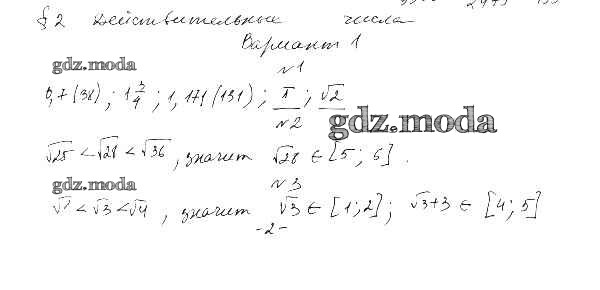 § 2 Действительные числа
Вариант 1
gdz.moda
№1
0,7(38); 1 3/4; 1,171(131); π; √2
№2
gdz.moda
√25 < √28 < √36, значит √28 ∈ [5; 6].
№3
gdz.moda
√1 < √3 < √4, значит √3 ∈ [1; 2]; √3+3 ∈ [4; 5]
-2-